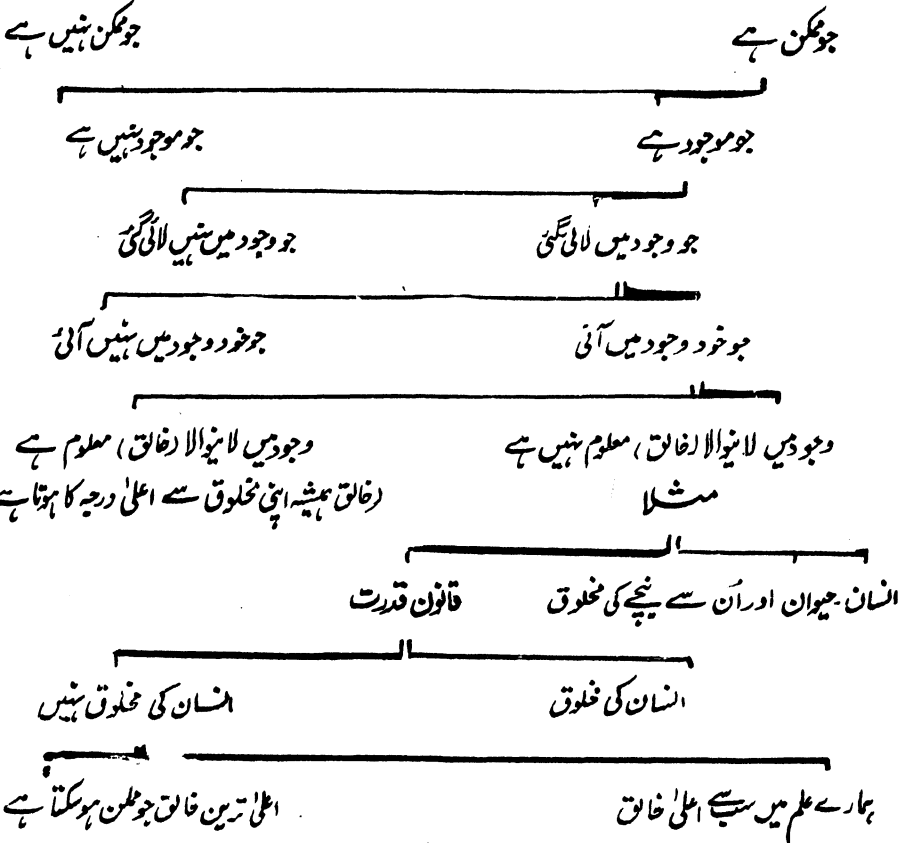 جو ممکن ہے
جو ممکن نہیں ہے
جو موجود ہے
جو موجود نہیں ہے
جو وجود میں لائی گئی
جو وجود میں نہیں لائی گئی
جو خود وجود میں آئی
جو خود وجود میں نہیں آئی
وجود میں لانیوالا (خالق) معلوم نہیں ہے
وجود میں لانیوالا (خالق) معلوم ہے
مثلاً
(خالق ہمیشہ اپنی مخلوق سے اعلیٰ درجہ کا ہوتا ہے
انسان۔ حیوان اور اُن سے نیچے کی مخلوق
قانون قدرت
انسان کی مخلوق
انسان کی مخلوق نہیں
ہمارے علم میں سب سے اعلیٰ خالق
اعلیٰ ترین خالق جو ممکن ہو سکتا ہے